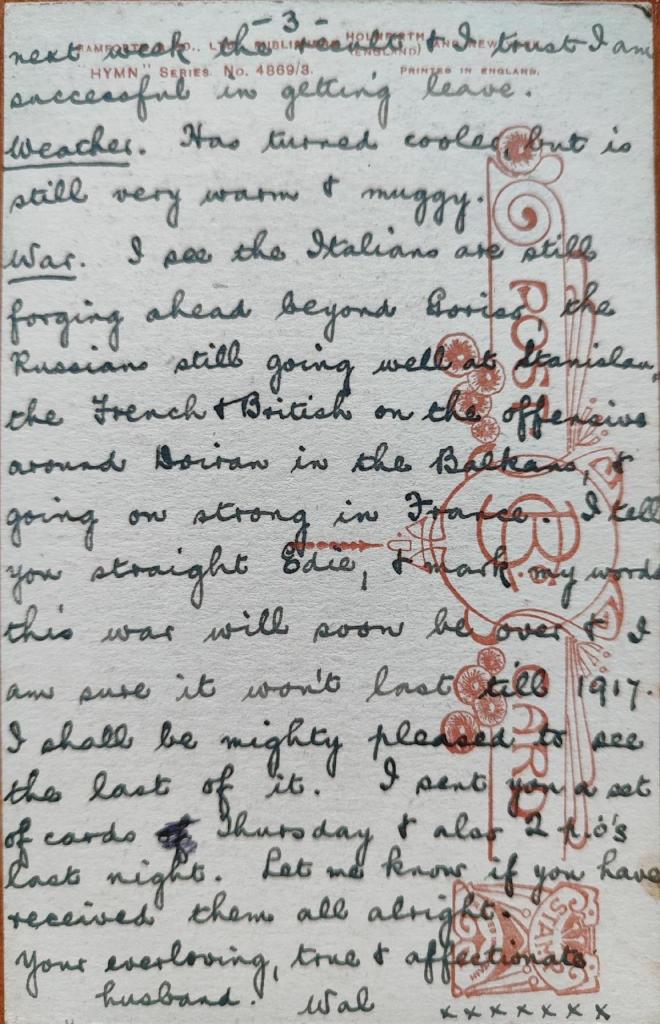 - 3 -
BAMFORTH & CO., LTD., PUBLISHERS, HOLMFIRTH (ENGLAND) AND NEW YORK
"HYMN" SERIES. No. 4869/3. PRINTED IN ENGLAND.
next week the result & I trust I am
successful in getting leave.
Weather. Has turned cooler, but is
still very warm & muggy.
War. I see the Italians are still
forging ahead beyond the
Russians still going well at Stanislau,
the French & British on the offensive
around Doiran in the Balkans, &
going on strong in France. I tell
you straight Edie, & mark my words
this war will soon be over & I
am sure it won't last till 1917.
I shall be mighty pleased to see
the last of it. I sent you a set
of cards Thursday & also 2 p.o's
last night. Let me know if you have
received them all alright.
Your everloving, true & affectionate
husband. Wal
x x x x x x x
POST CARD
B.
STAMP